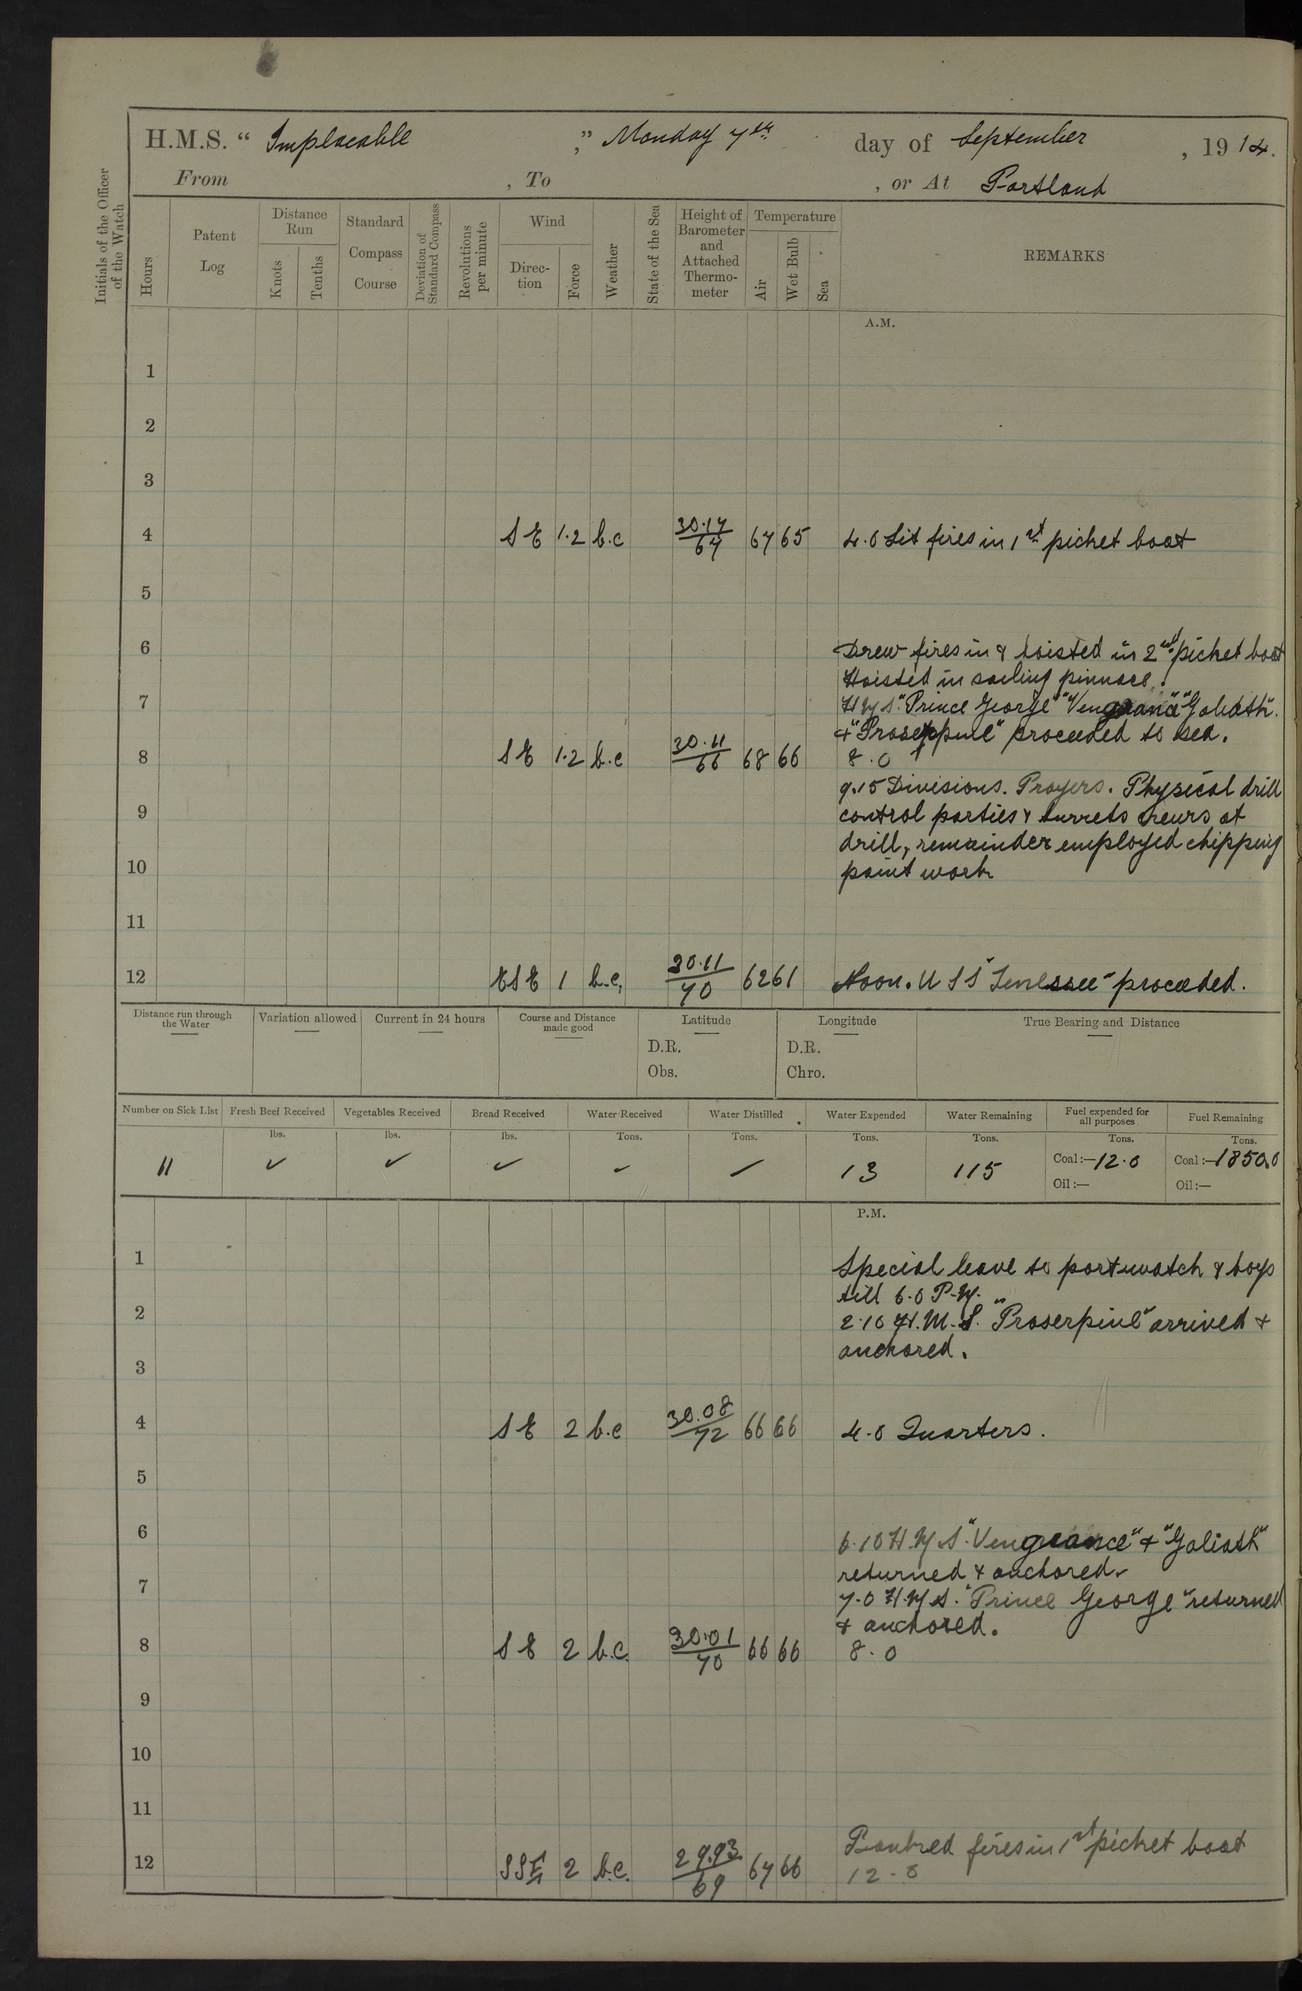 H.M.S. “ Implacable ,” Monday 7th day of September , 19 14.
From , To , or At Portland
Initials of the Officer of the Watch
Hours
Patent Log
Distance Run
Knots
Tenths
Standard Compass Course
Deviation of Standard Compass
Revolutions per minute
Wind
Direc- tion
Force
Weather
State of the Sea
Height of Barometer and Attached Thermo- meter
Temperature
Air
Wet Bulb
Sea
REMARKS
A.M.
1
2
3
4 S E 1.2 b.c 30.17/67 67 65 4.0 Lit fires in 1st picket boat
5
6 Drew fires in & hoisted in 2nd picket boat
Hoisted in sailing pinnace.
7 H M S. "Prince George" "Vengeance" "Goliath".
& "Proserpine" proceeded to sea.
8 S E 1.2 b.c 30.11/66 68 66 8.0
9.15 Divisions. Prayers. Physical drill
9 control parties & turrets creurs at
drill, remainder employed chipping
10 paint work
11
12 E S E 1 b.c. 30.11/70 62 61 Noon. U S S "Tenessee" proceeded.
Distance run through the Water
Variation allowed
Current in 24 hours
Course and Distance made good
Latitude
D.R.
Obs.
Longitude
D.R.
Chro.
True Bearing and Distance
Number on Sick List
Fresh Beef Received
Vegetables Received
Bread Received
Water Received
Water Distilled
Water Expended
Water Remaining
Fuel expended for all purposes
Fuel Remaining
lbs. lbs. lbs. Tons. Tons. Tons. Tons. Tons. Tons.
11 ✓ ✓ ✓ ✓ ✓ 13 115 Coal:—12.0 Coal:—1850.0
Oil:— Oil:—
P.M.
1 Special leave to port watch & boys
till 6.0 P.M.
2 2.10 H.M.S. "Proserpine" arrived &
anchored.
3
4 S E 2 b.c 30.08/72 66 66 4.0 Quarters.
5
6 6.10 H.M.S. "Vengeance" & "Goliath"
returned & anchored.
7 7.0 H.M.S. "Prince George" returned
& anchored.
8 S E 2 b.c. 30.01/70 66 66 8.0
9
10
11
Banked fires in 1st picket boat
12 SSE 2 b.c. 29.93/69 67 66 12.0